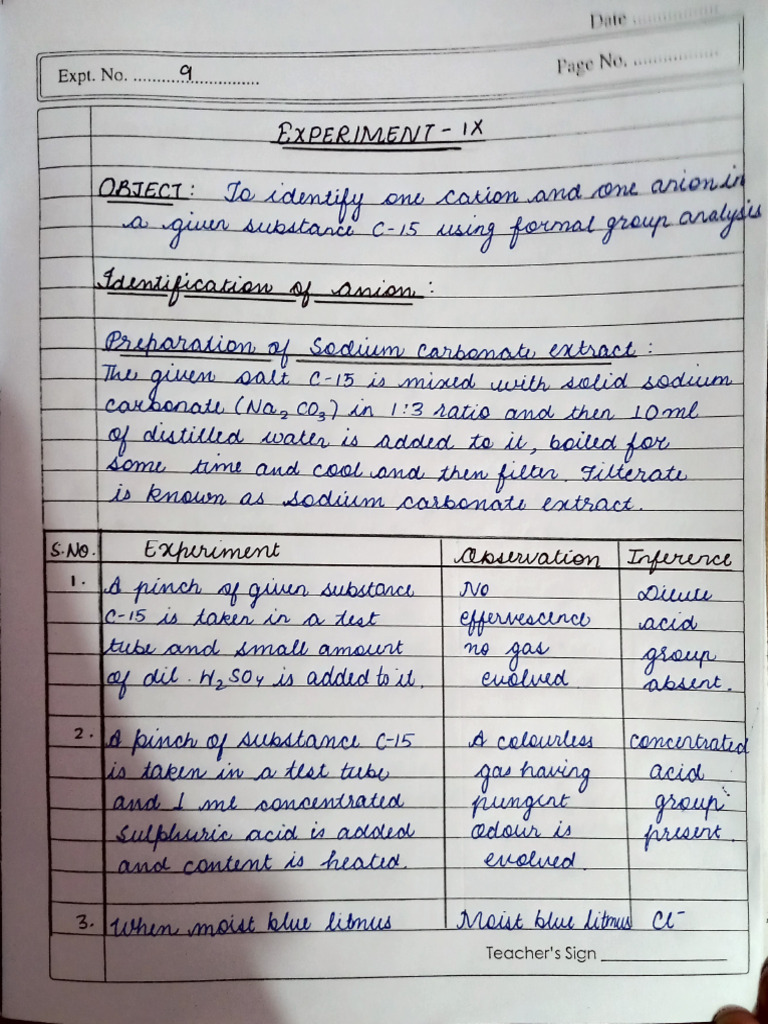 Date ..............
Expt. No. ........9..............
Page No. ..............
EXPERIMENT - IX
OBJECT : To identify one cation and one anion in
a given substance C-15 using formal group analysis
Identification of anion :
Preparation of Sodium carbonate extract :
The given salt C-15 is mixed with solid sodium
carbonate (Na₂CO₃) in 1:3 ratio and then 10 ml
of distilled water is added to it, boiled for
some time and cool and then filter. Filterate
is known as sodium carbonate extract.
S.NO. Experiment Observation Inference
1. A pinch of given substance No Dilute
C-15 is taken in a test effervescence acid
tube and small amount no gas group
of dil. H₂SO₄ is added to it. evolved absent.
2. A pinch of substance C-15 A colourless concentrated
is taken in a test tube gas having acid
and 1 ml concentrated pungent group
Sulphuric acid is added odour is present.
and content is heated. evolved
3. When moist blue litmus Moist blue litmus Cl⁻
Teacher's Sign ______________